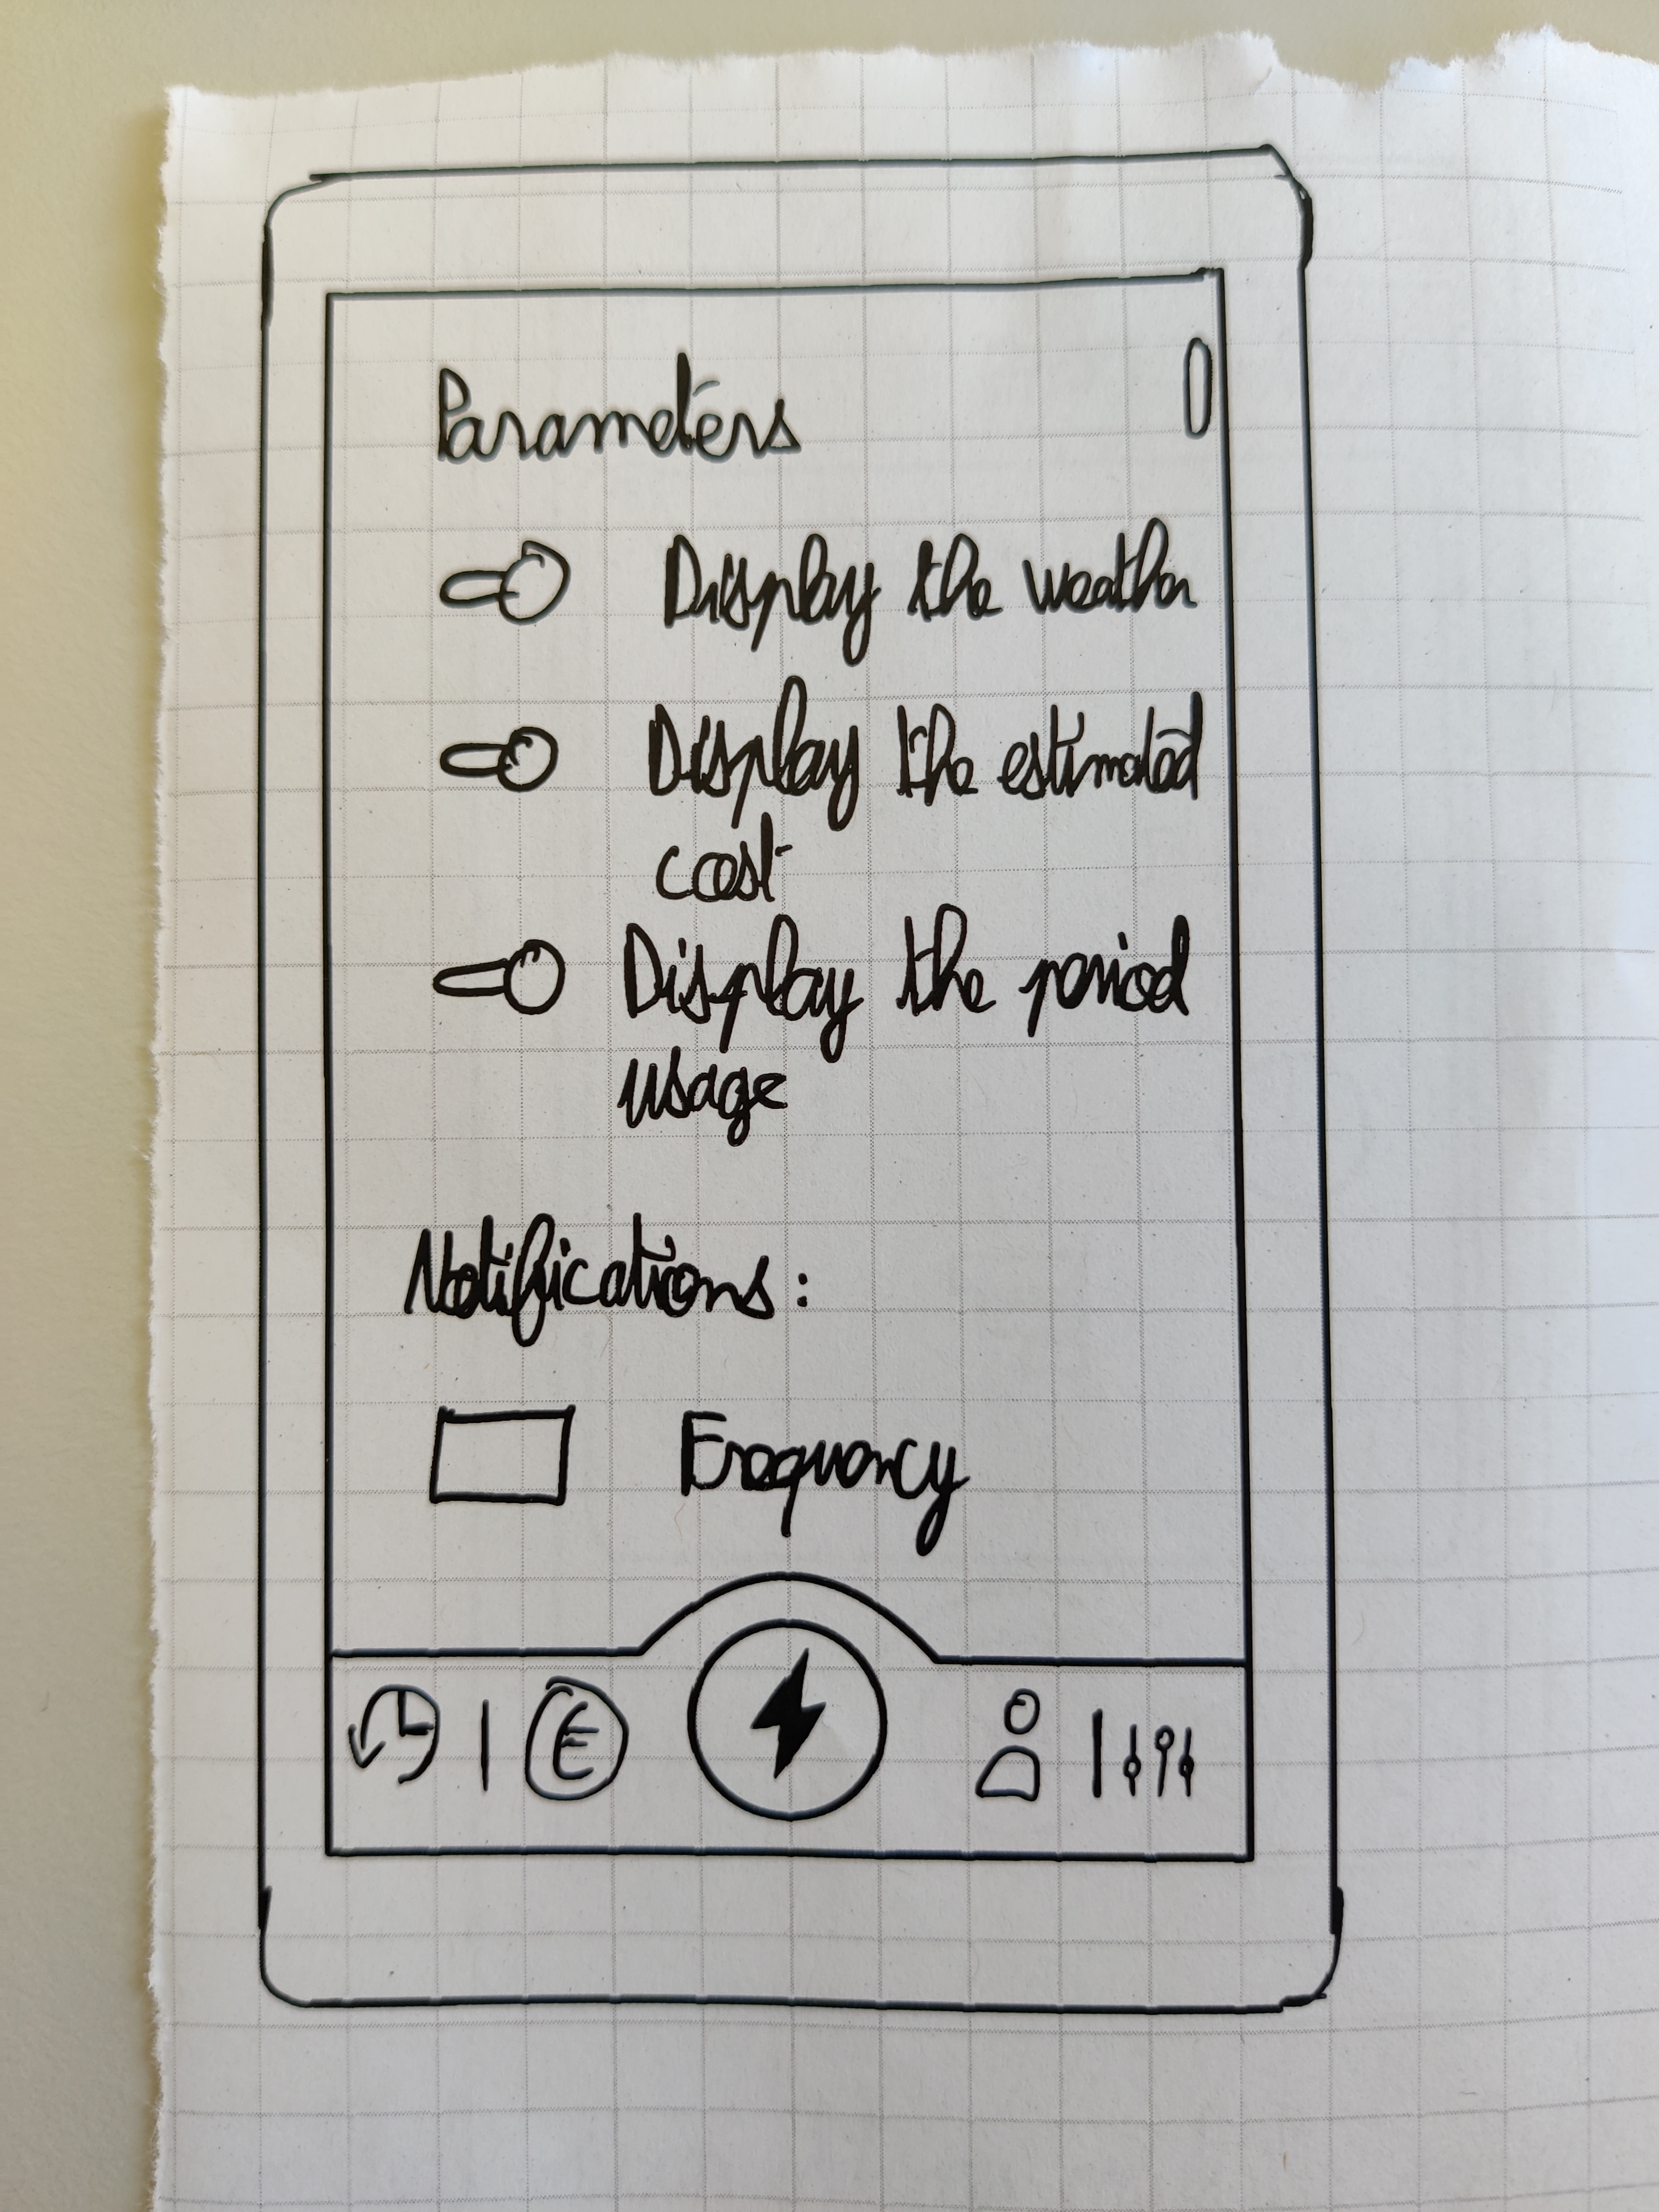 Parameters
Display the weather
Display the estimated
cost
Display the period
usage
Notifications:
Frequency
€